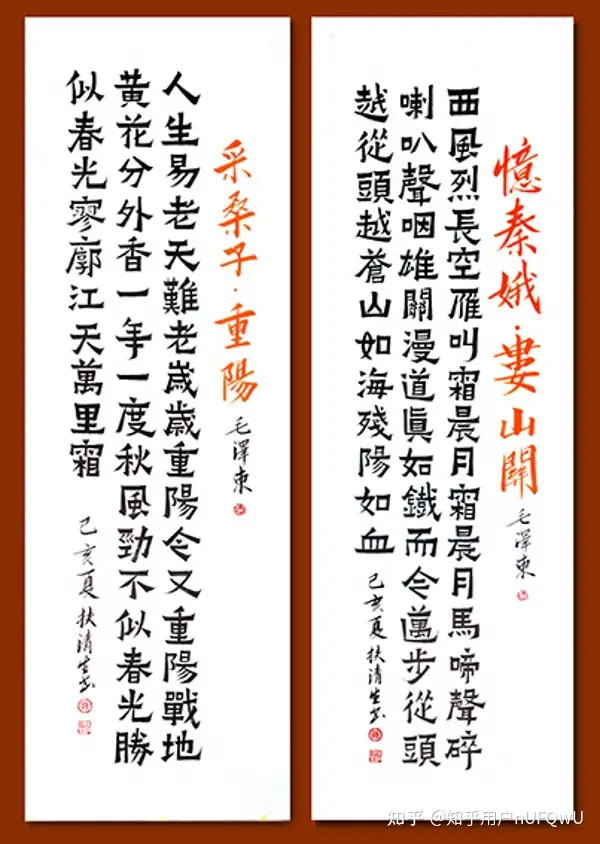 憶秦娥·婁山關
毛澤東
西風烈長空雁叫霜晨月霜晨月馬啼聲碎
喇叭聲咽雄關漫道眞如鐵而今邁步從頭
越從頭越蒼山如海殘陽如血
己亥夏扶清生书
采桑子·重陽
毛澤東
人生易老天難老歲歲重陽今又重陽戰地
黄花分外香一年一度秋風勁不似春光勝
似春光寥廓江天萬里霜
己亥夏扶清生书
知乎 @知乎用户nUFQWU